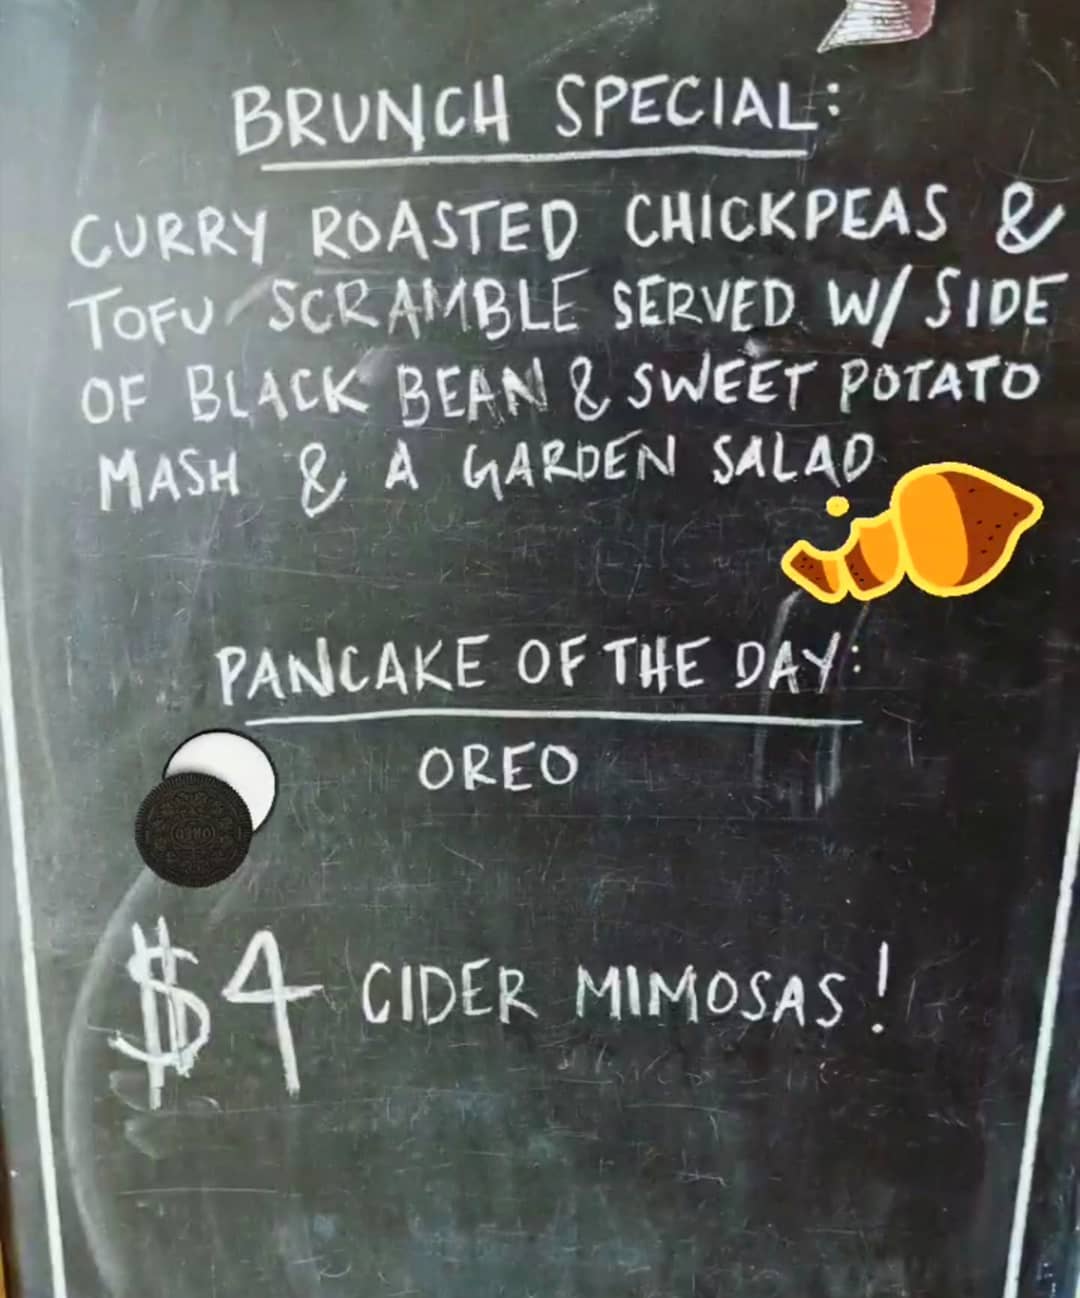 BRUNCH SPECIAL:
CURRY ROASTED CHICKPEAS &
TOFU SCRAMBLE SERVED W/ SIDE
OF BLACK BEAN & SWEET POTATO
MASH & A GARDEN SALAD
PANCAKE OF THE DAY:
OREO
OREO
$4 CIDER MIMOSAS!